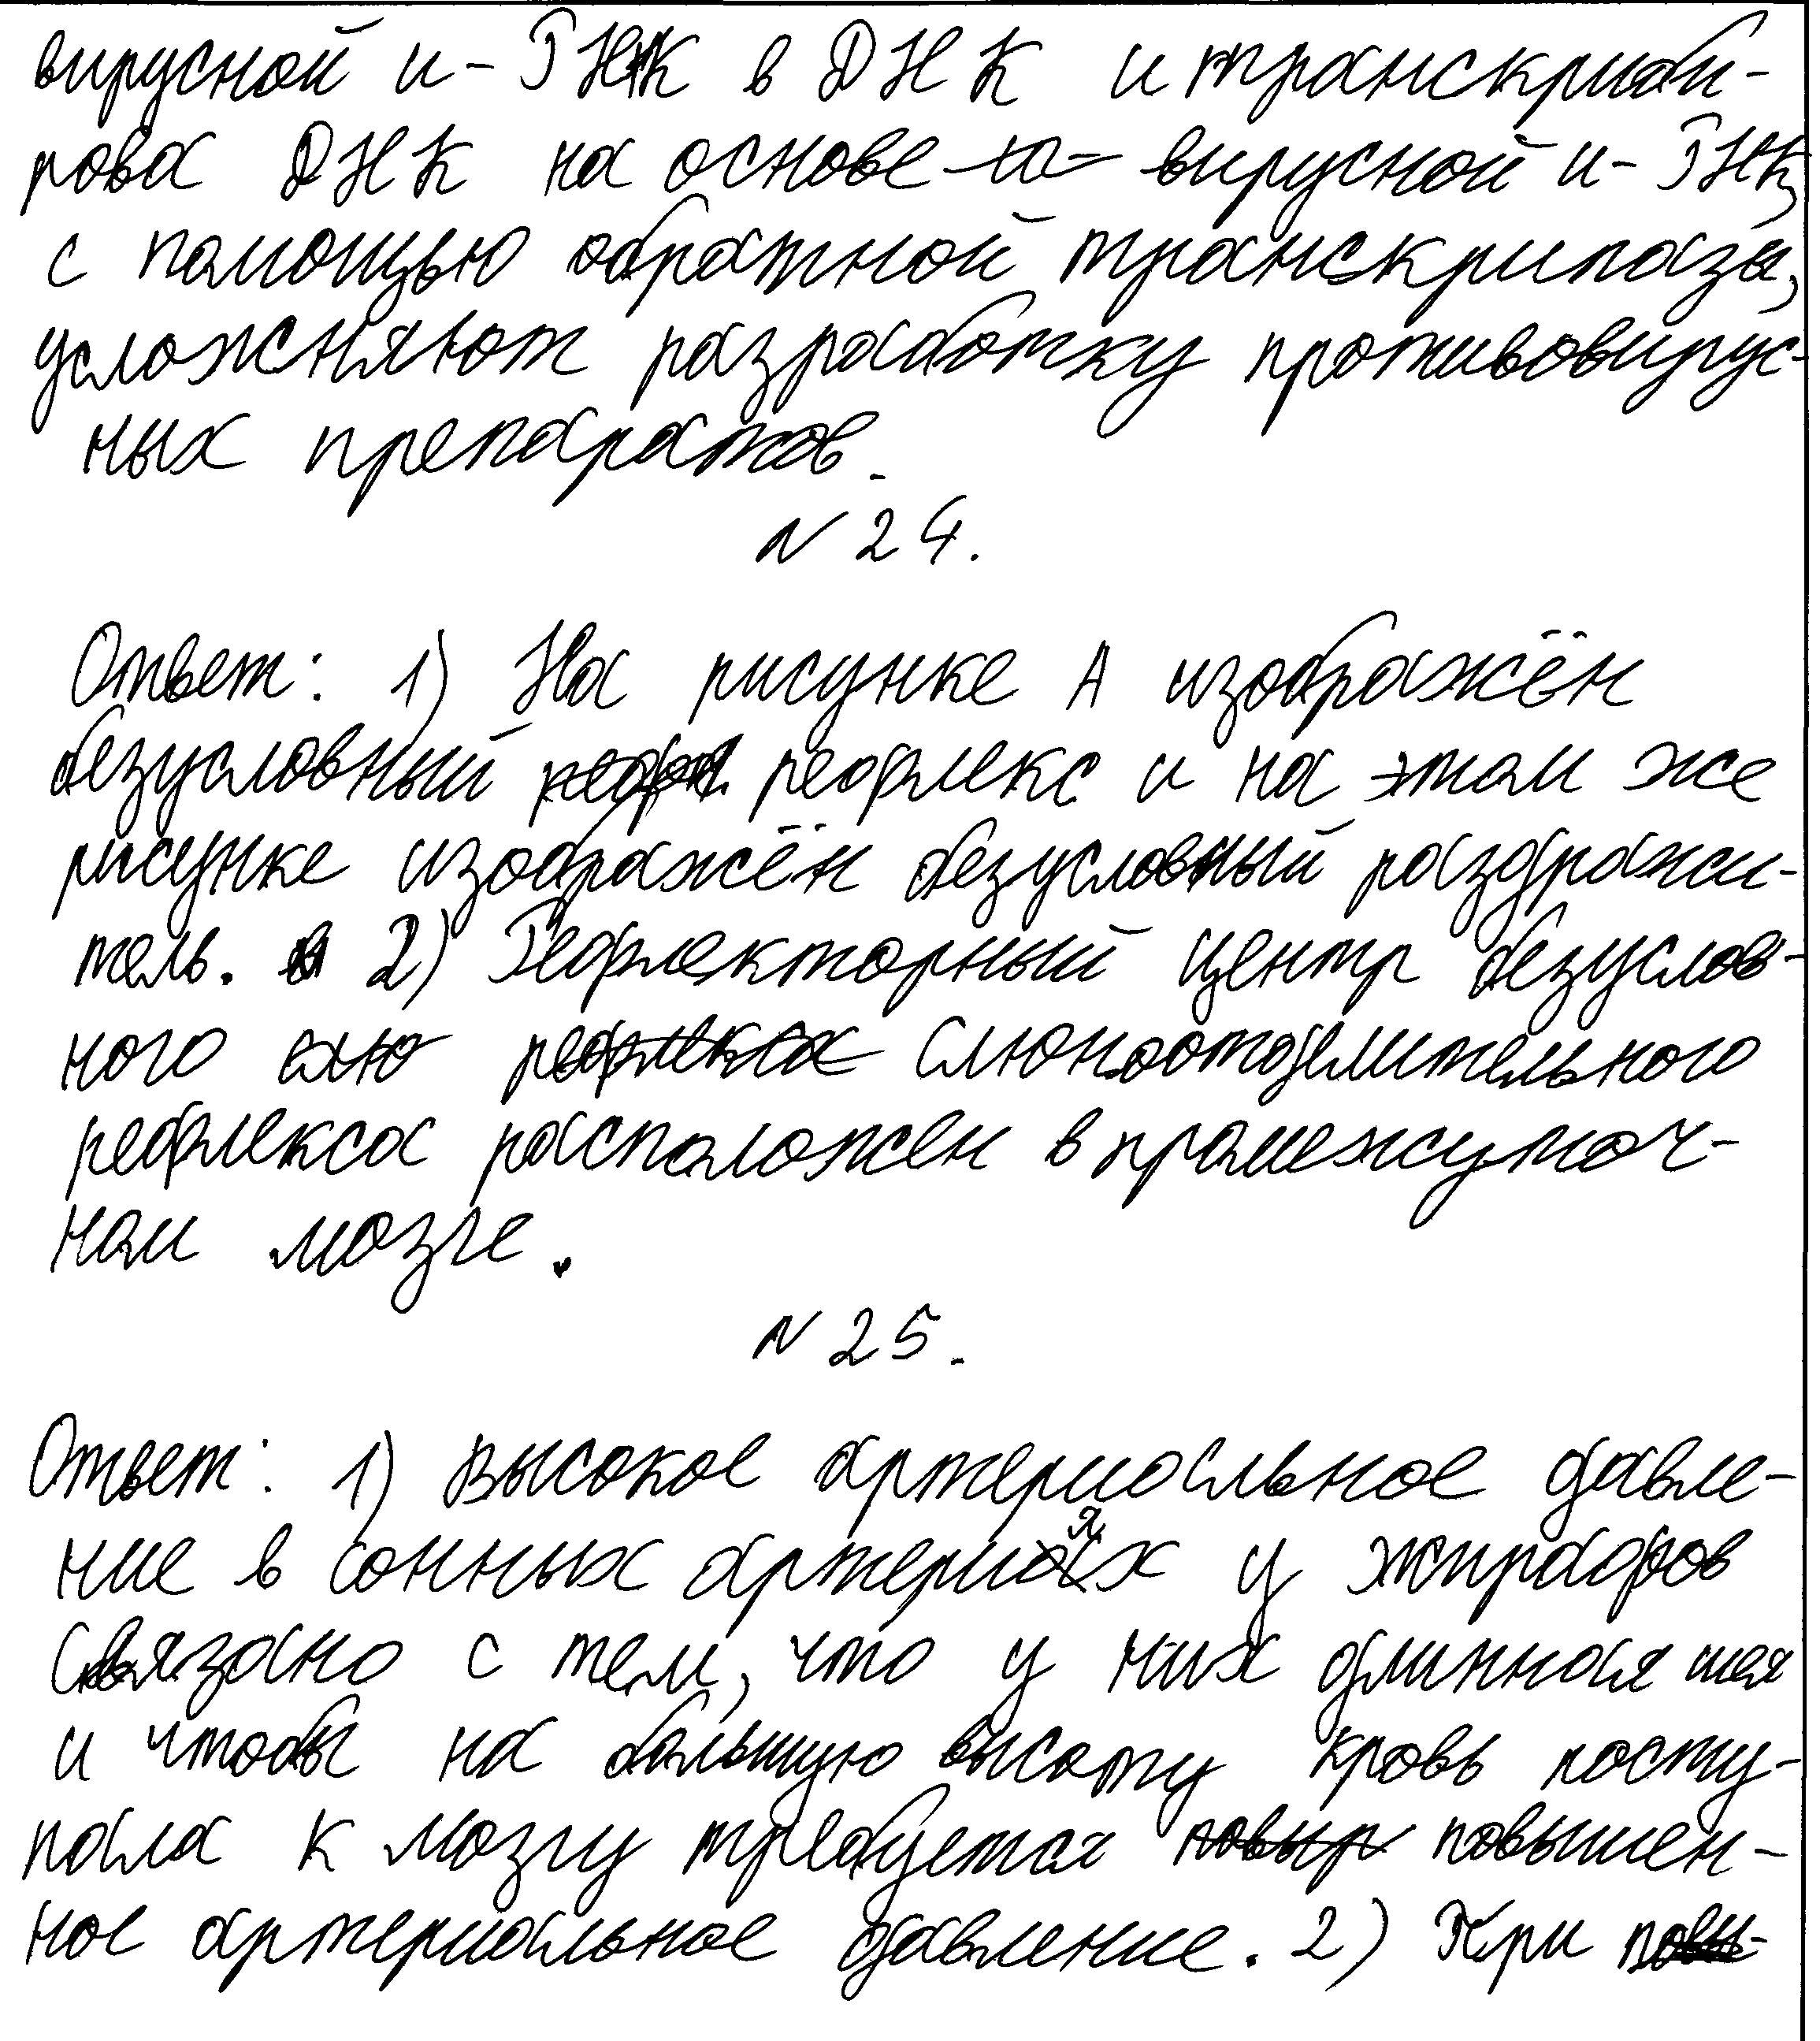 вирусной и-РНК в ДНК и транскриби-
рова ДНК на основе вирусной и-РНК,
с помощью обратной транскрипазы,
усложняют разработку противовирус-
ных препаратов.
N 24.
Ответ: 1) На рисунке А изображён
безусловный рефлекс и на этом же
рисунке изображён безусловный раздражи-
тель. 2) Рефлекторный центр безуслов-
ного слюноотделительного
рефлекса расположен в промежуточ-
ном мозге.
N 25.
Ответ: 1) Высокое артериальное давле-
ние в сонных артериях у жирафов
связано с тем, что у них длинная шея
и чтобы на большую высоту кровь посту-
пала к мозгу требуется повышен-
ное артериальное давление. 2) При